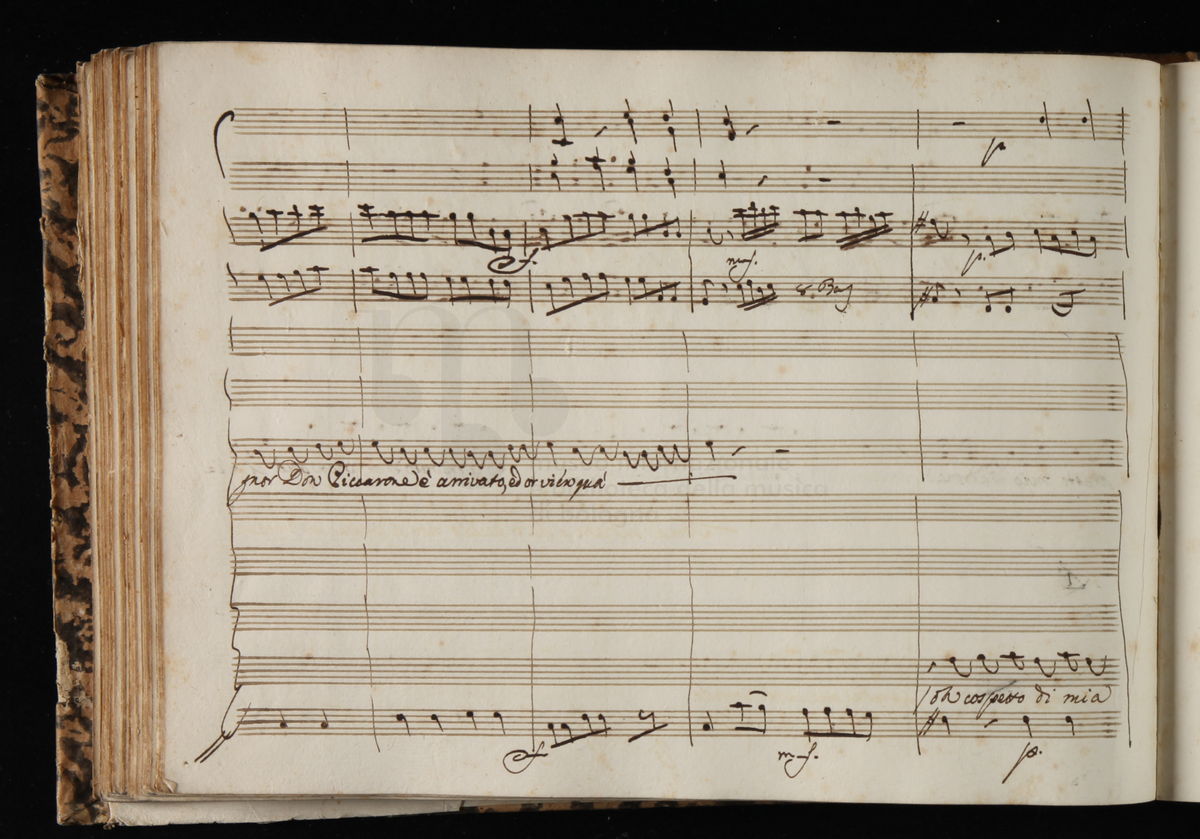 p
sf.
mf.
p.
8. Bas
gnor Don Ciccarone è arrivato, ed or vien quà
oh cospetto di mia
sf
mf.
p.